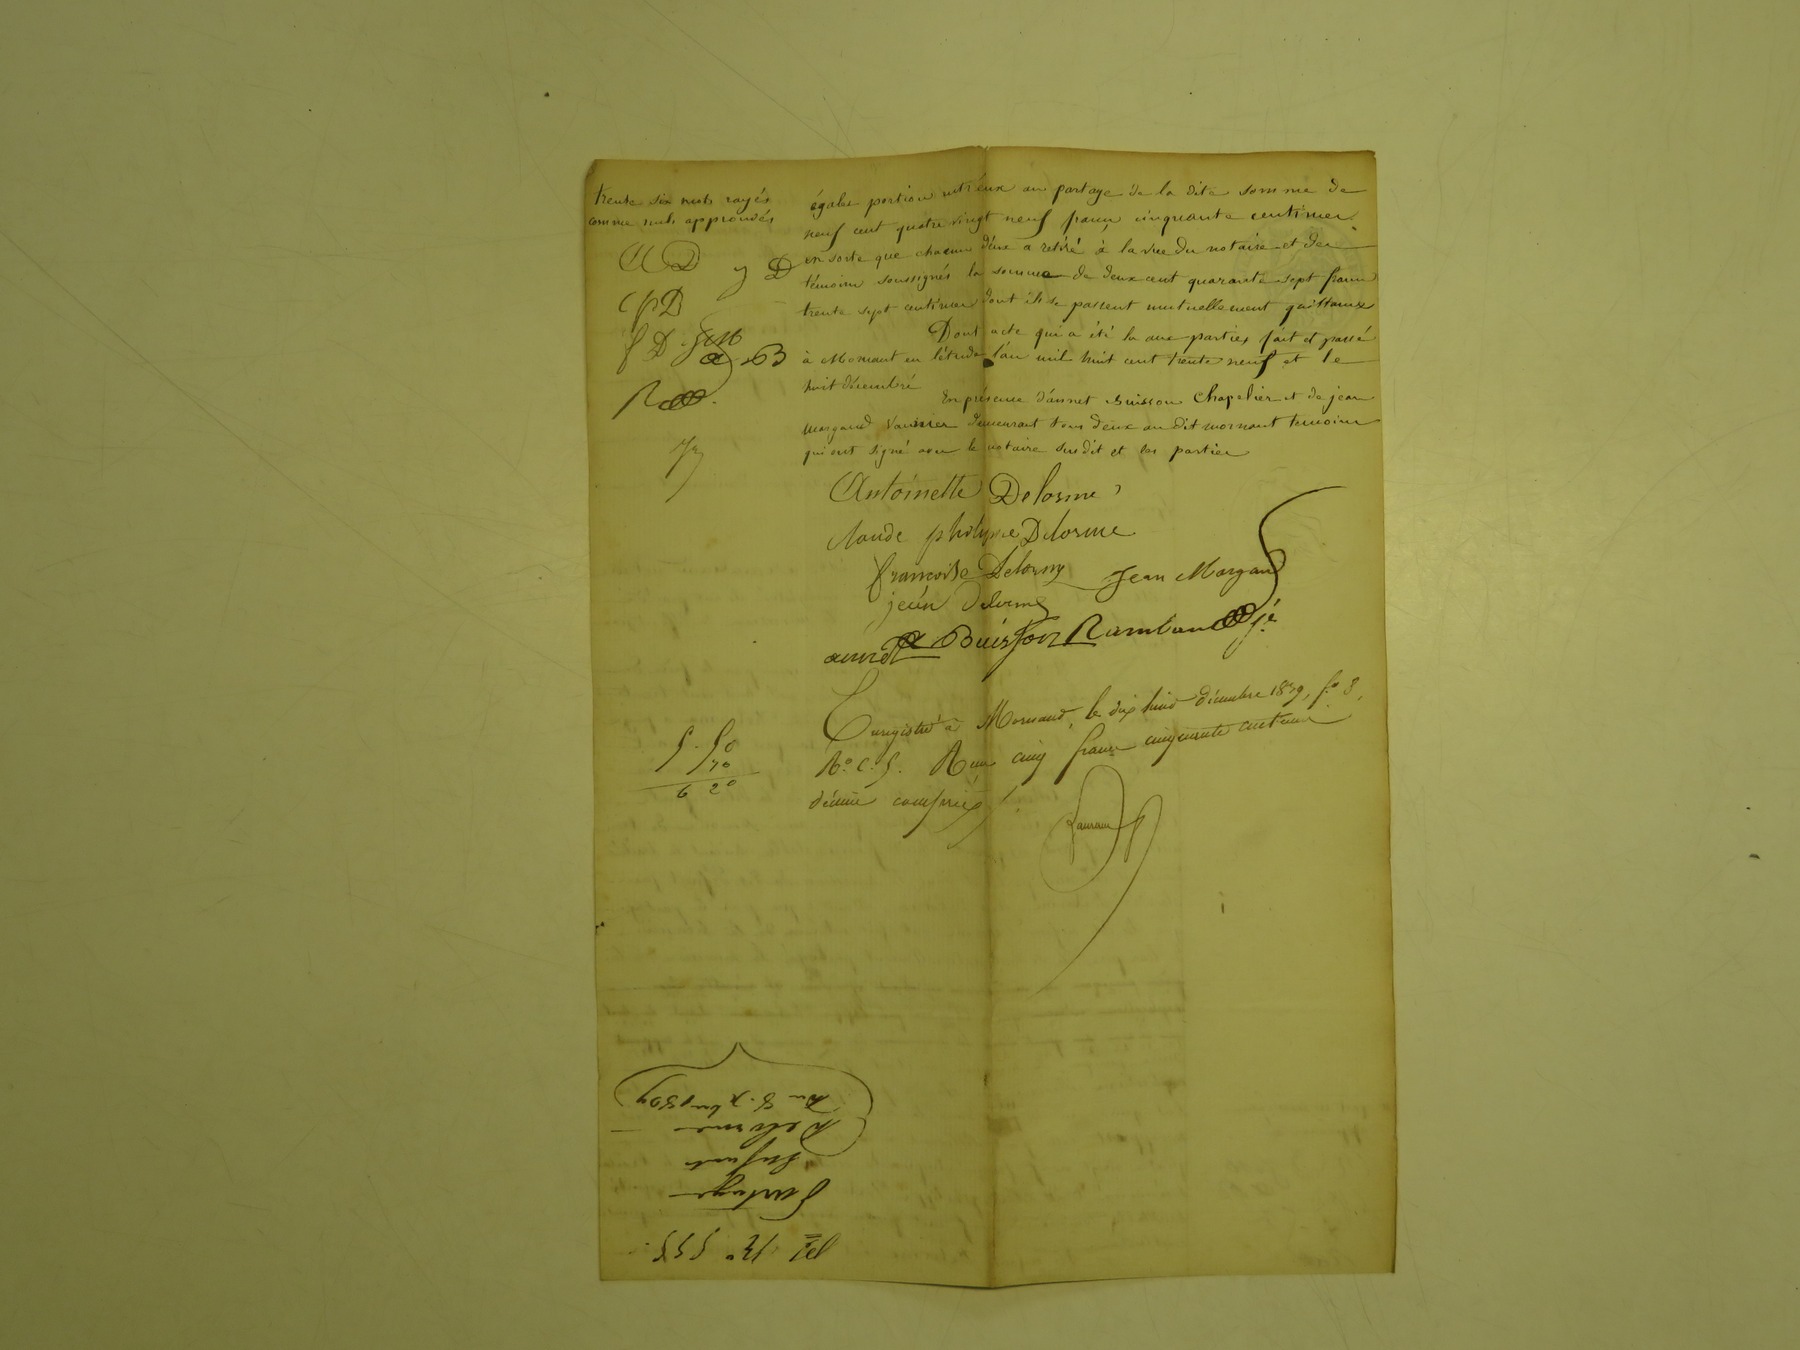 trente six mots rayés
comme nuls approuvés
AD
J D
CPD
f D JM
a B
R
égales portions entr'eux au partage de la dite somme de
neuf cent quatre vingt neuf francs cinquante centimes.
en sorte que chacun d'eux a retiré à la vue du notaire et des
témoins soussignés la somme de deux cent quarante sept francs
trente sept centimes dont ils se passent mutuellement quittance
Dont acte qui a été lu aux parties fait et passé
à Mornant en l'étude l'an mil huit cent trente neuf et le
huit décembre
En présence d'annet Buisson Chapelier et de jean
Margand demeurant tous deux au dit mornant temoins
qui ont signé avec le notaire susdit et les parties
Antoinette Delorme
Claude philippe Delorme
francoise Delorme
Jean Margand
jean Delorme
annet Buisson Rambaud
Enregistré à Mornant, le dix huit décembre 1839, fo 8,
Ro C. 5. Reçu cinq francs cinquante centimes
décime compris
5.50
70
6 20
No 555
Partage
Enfants
Delorme
Du 8. Xbre 1839